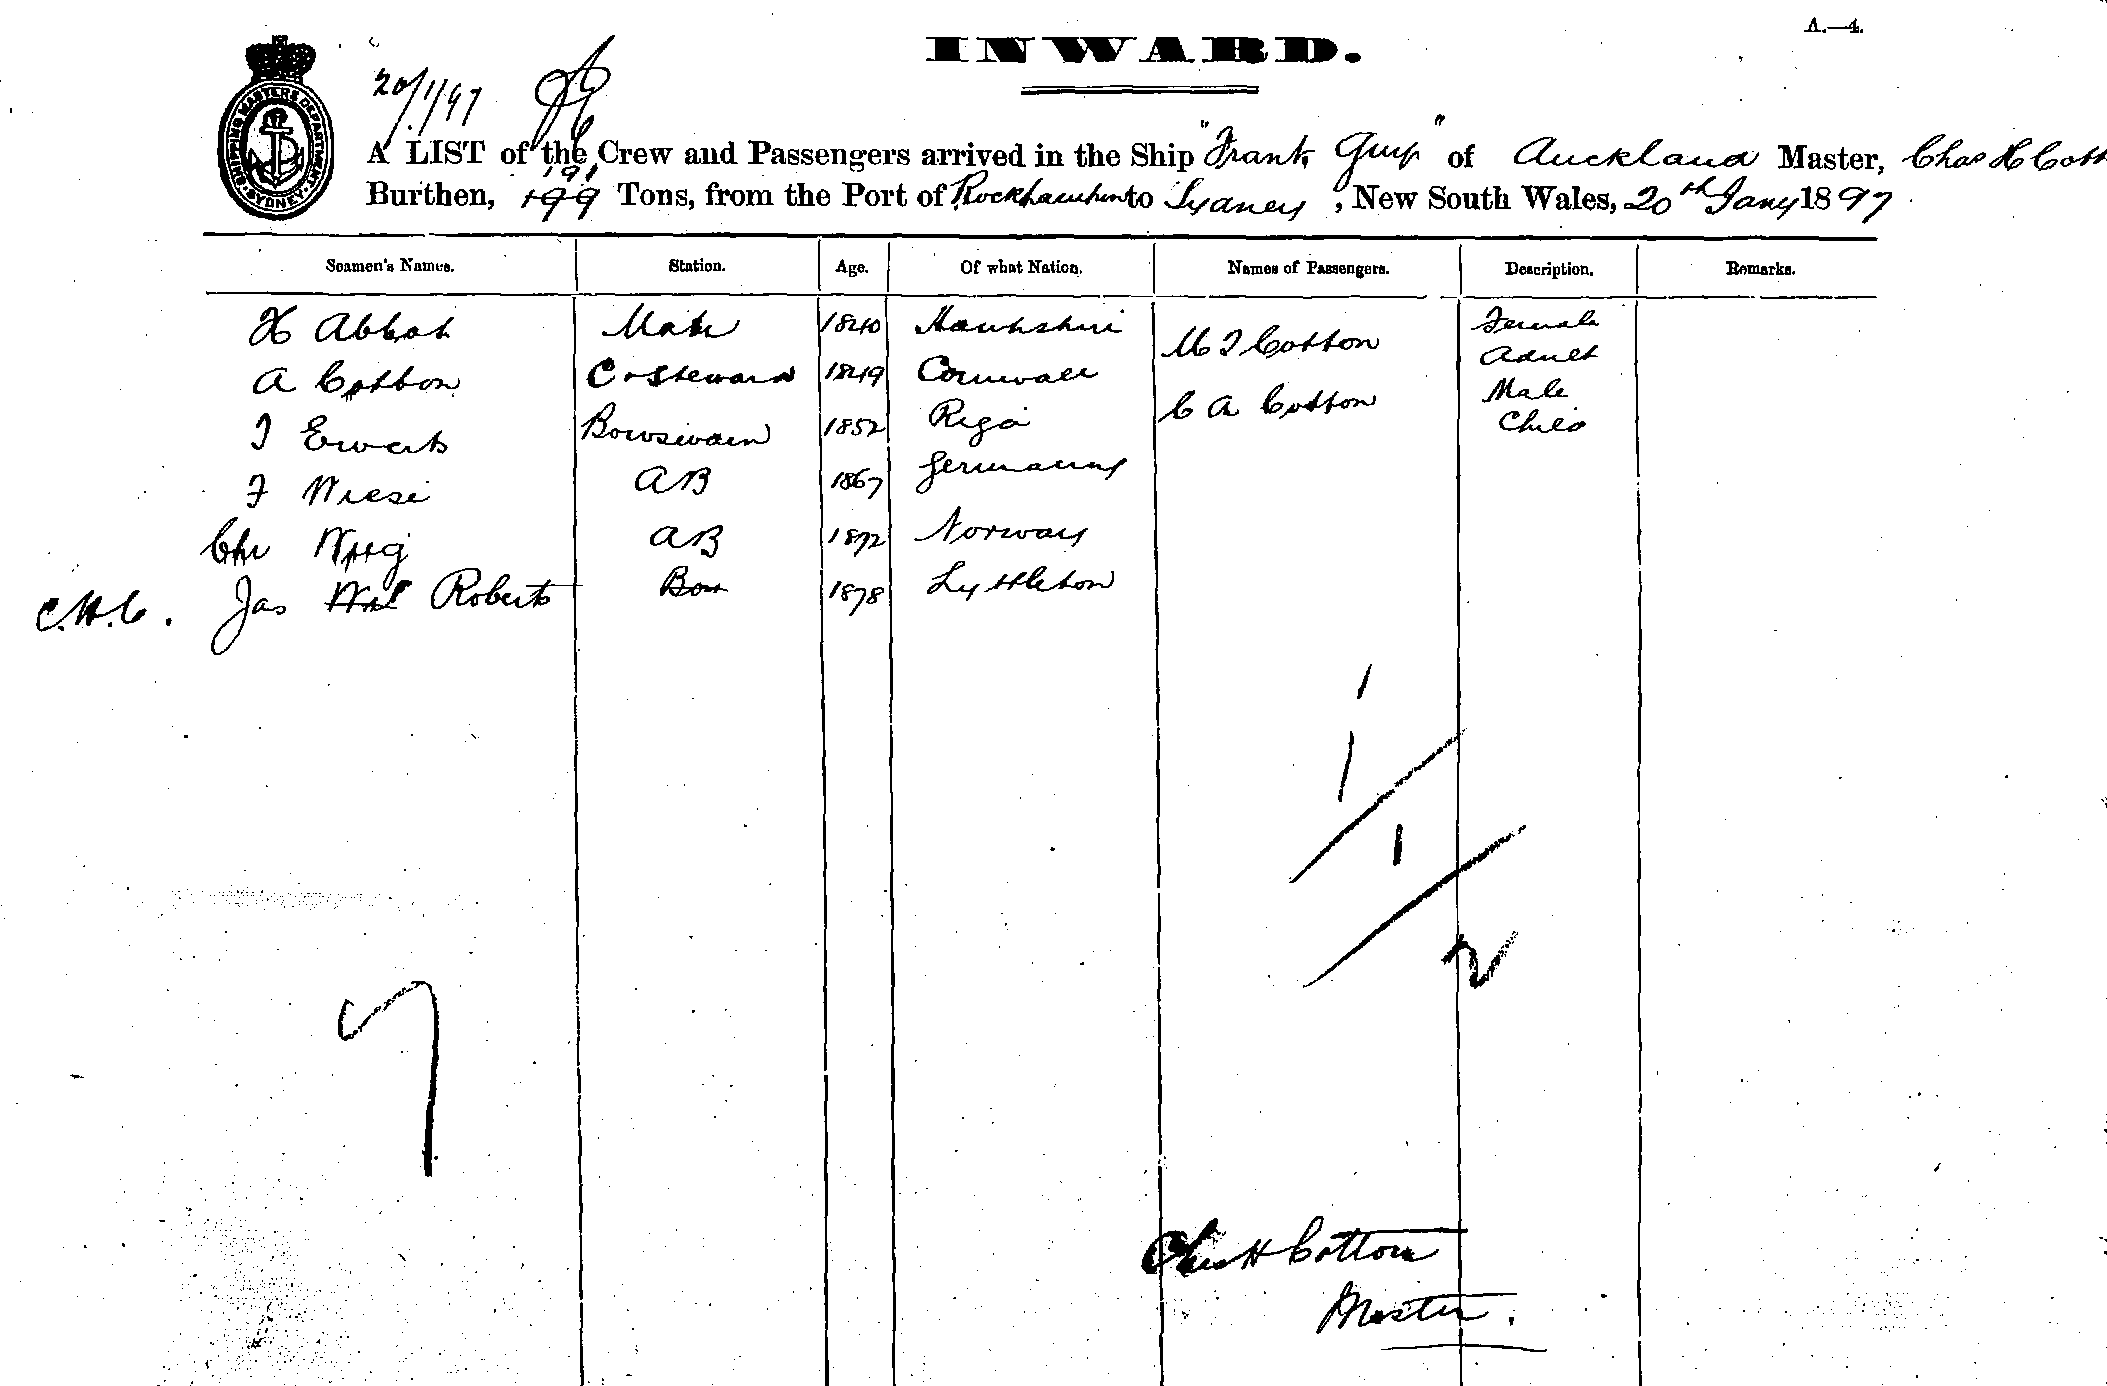 A.—4.
INWARD.
20/1/97
SHIPPING MASTERS DEPARTMENT SYDNEY
A LIST of the Crew and Passengers arrived in the Ship "Frank Guy" of Auckland Master, Chas H Cott
191
Burthen, 199 Tons, from the Port of Rockhampton to Sydney, New South Wales, 20th Jany 1897
Seamen's Names. Station. Age. Of what Nation. Names of Passengers. Description. Remarks.
H Abbot Mate 1840 M T Cotton Female Adult
A Cotton C & Steward 1849 Cornwall C A Cotton Male Child
J Ewerts Bowswain 1852 Riga
F Wiese AB 1867 Germany
Chr AB 1872 Norway
C.H.C. Jas Roberts Boy 1878 Lyttleton
1
1
1
2
7
Chas H Cotton
Master.